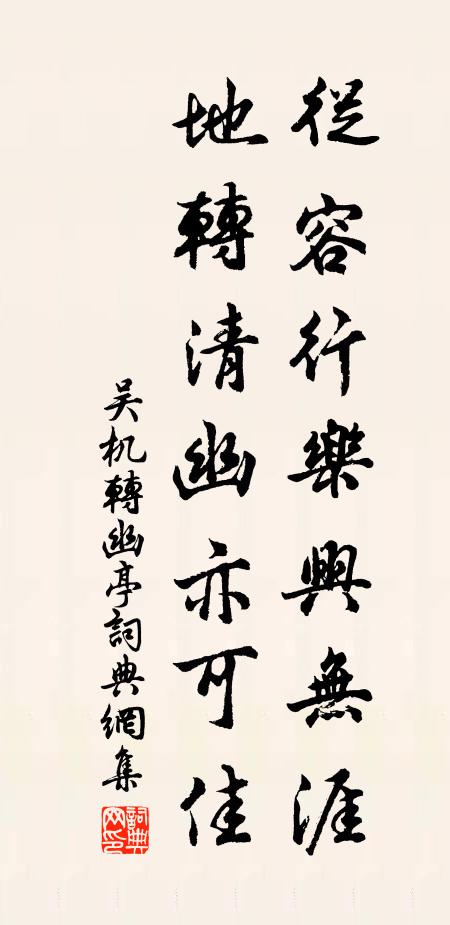 從容行樂興無涯
地轉清幽亦可佳
吴机轉幽亭詞典網集
詞典網印